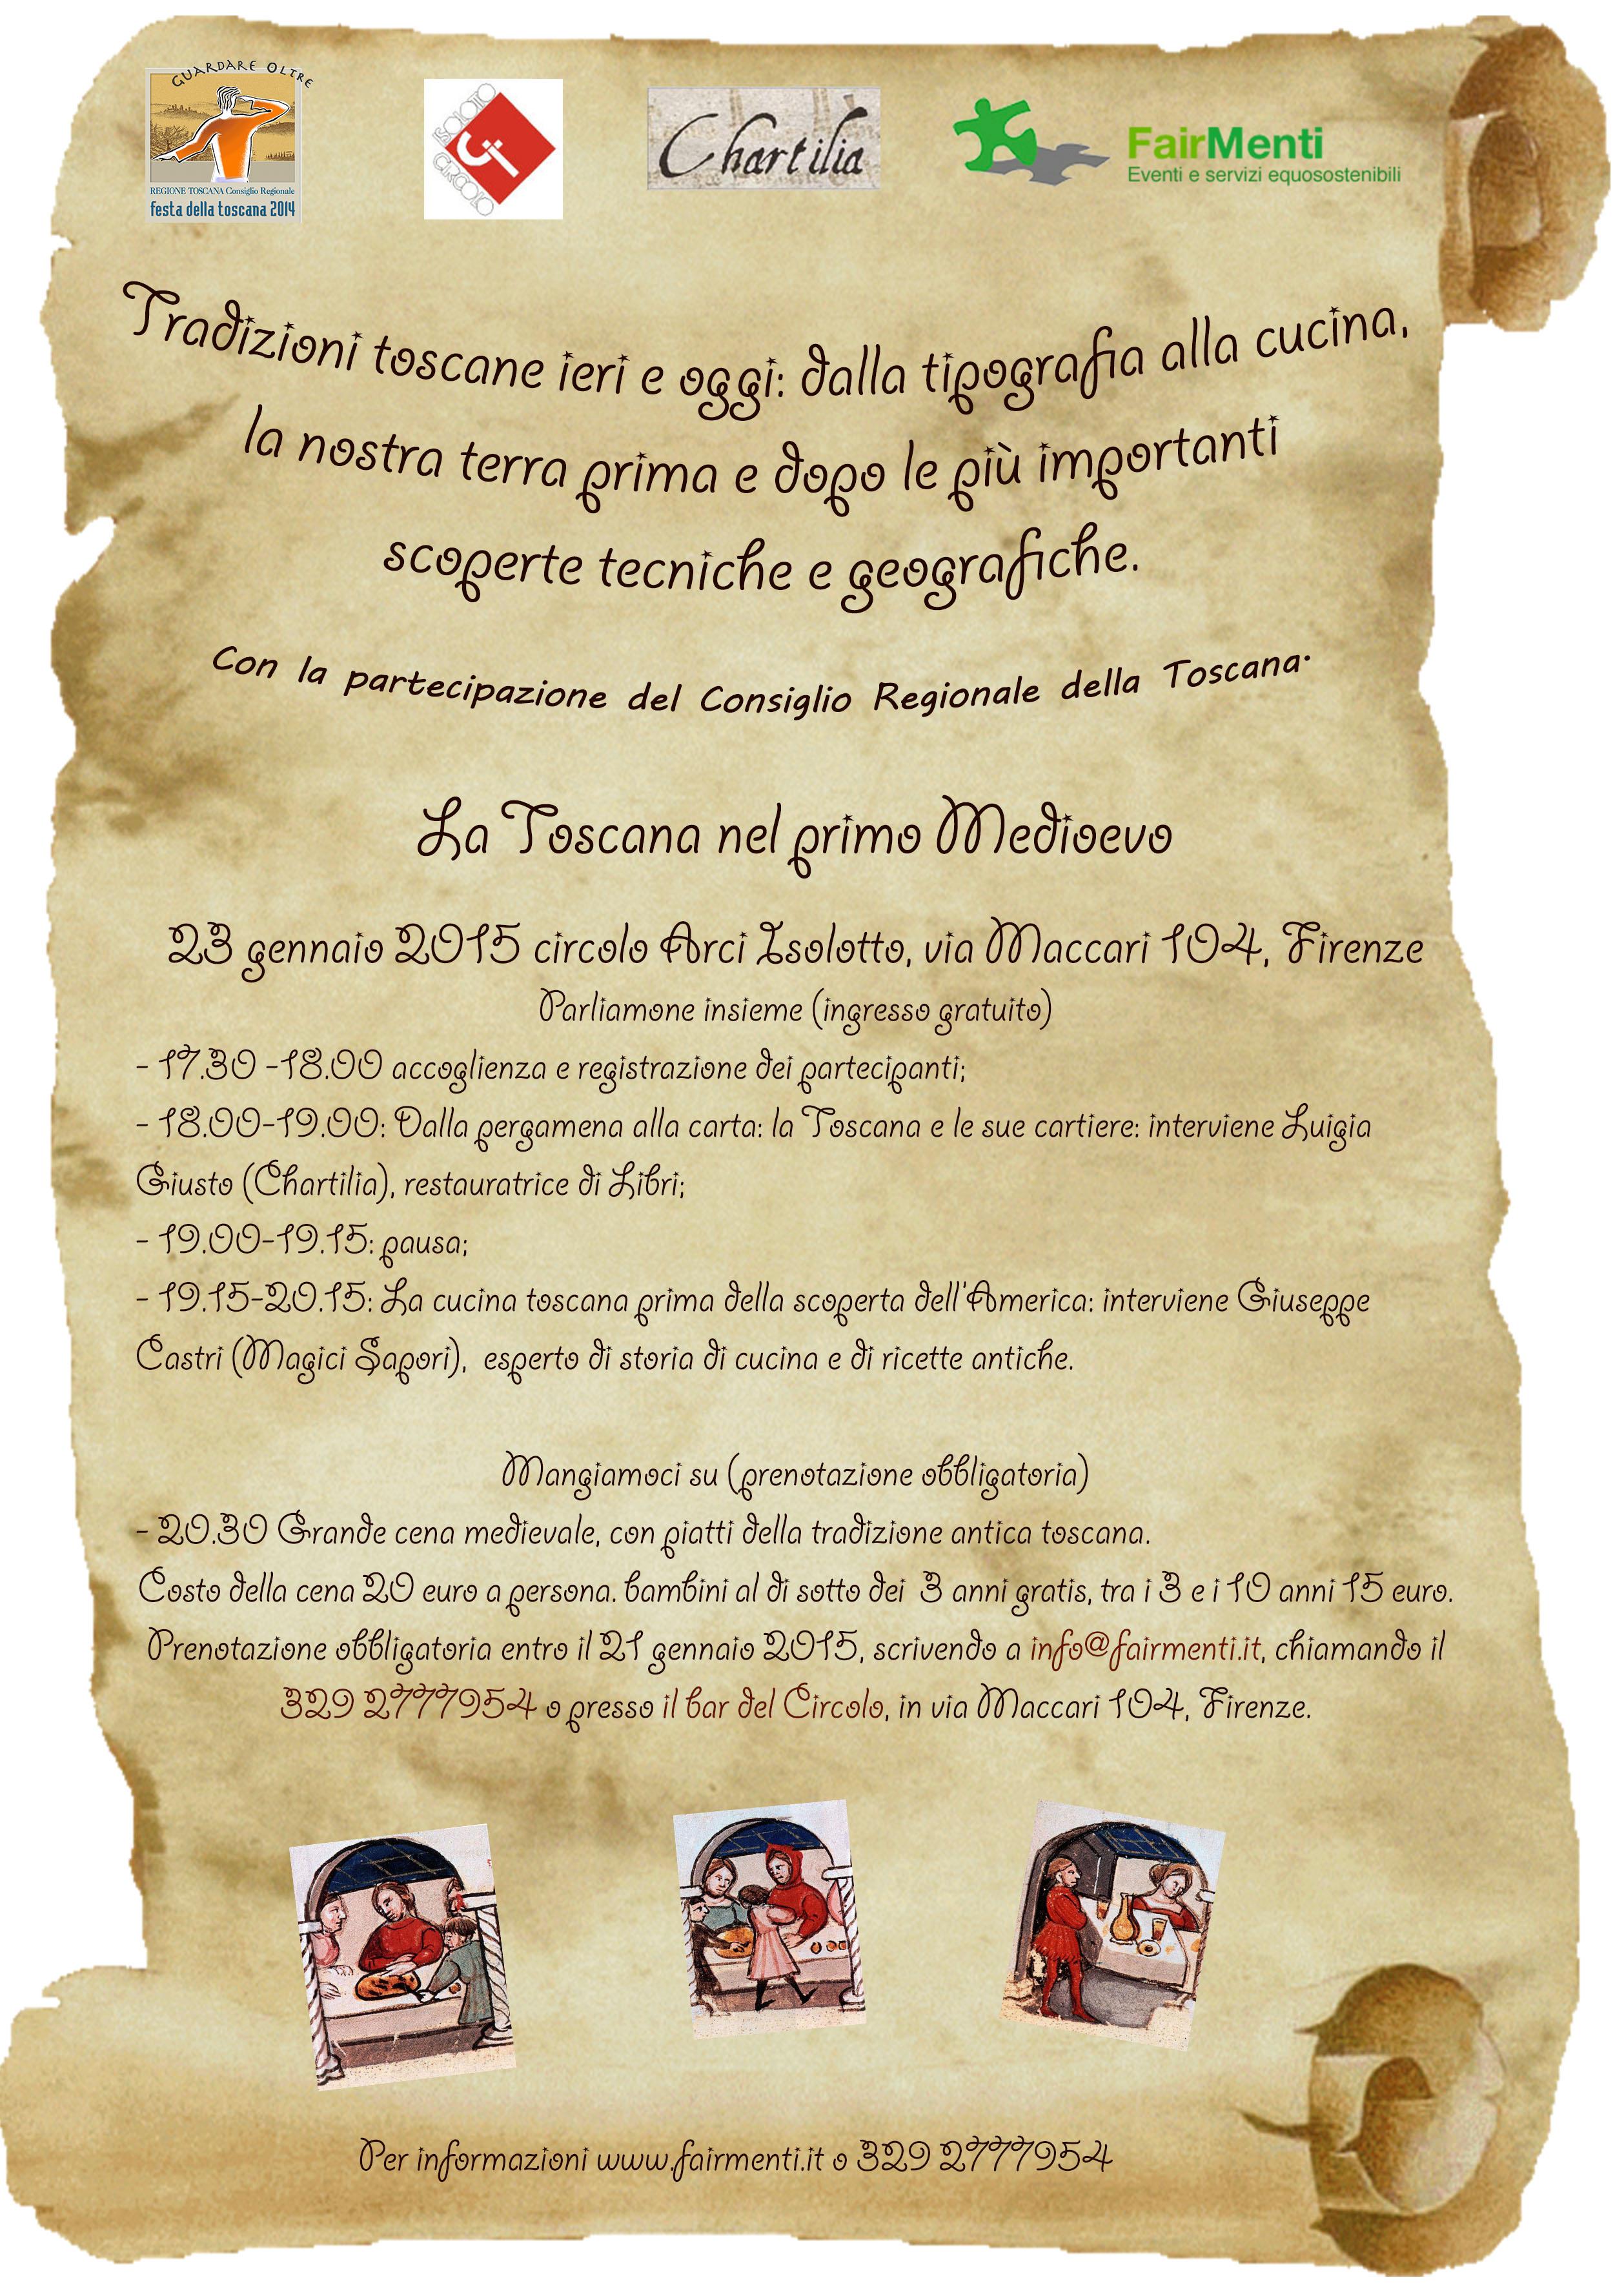 GUARDARE OLTRE
REGIONE TOSCANA Consiglio Regionale
festa della toscana 2014
ISOLOTTO
CIRCOLO
Chartilia
FairMenti
Eventi e servizi equosostenibili
Tradizioni toscane ieri e oggi: dalla tipografia alla cucina,
la nostra terra prima e dopo le più importanti
scoperte tecniche e geografiche.
Con la partecipazione del Consiglio Regionale della Toscana.
La Toscana nel primo Medioevo
23 gennaio 2015 circolo Arci Isolotto, via Maccari 104, Firenze
Parliamone insieme (ingresso gratuito)
- 17.30 -18.00 accoglienza e registrazione dei partecipanti;
- 18.00-19.00: Dalla pergamena alla carta: la Toscana e le sue cartiere: interviene Luigia
Giusto (Chartilia), restauratrice di Libri;
- 19.00-19.15: pausa;
- 19.15-20.15: La cucina toscana prima della scoperta dell'America: interviene Giuseppe
Castri (Magici Sapori), esperto di storia di cucina e di ricette antiche.
Mangiamoci su (prenotazione obbligatoria)
- 20.30 Grande cena medievale, con piatti della tradizione antica toscana.
Costo della cena 20 euro a persona. bambini al di sotto dei 3 anni gratis, tra i 3 e i 10 anni 15 euro.
Prenotazione obbligatoria entro il 21 gennaio 2015, scrivendo a info@fairmenti.it, chiamando il
329 2777954 o presso il bar del Circolo, in via Maccari 104, Firenze.
Per informazioni www.fairmenti.it o 329 2777954